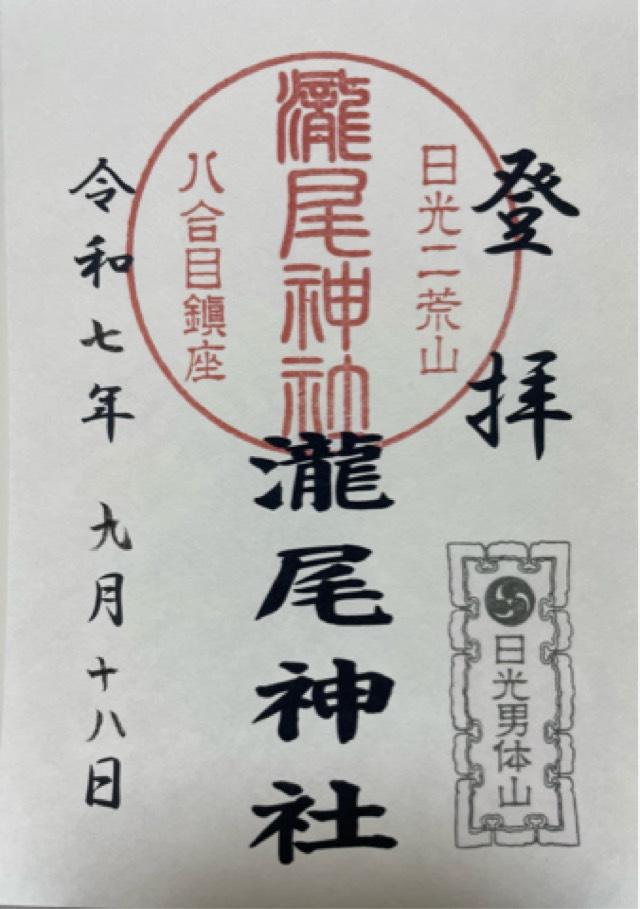 登拝
日光二荒山
瀧尾神社
八合目鎮座
日光男体山
瀧尾神社
令和七年 九月十八日